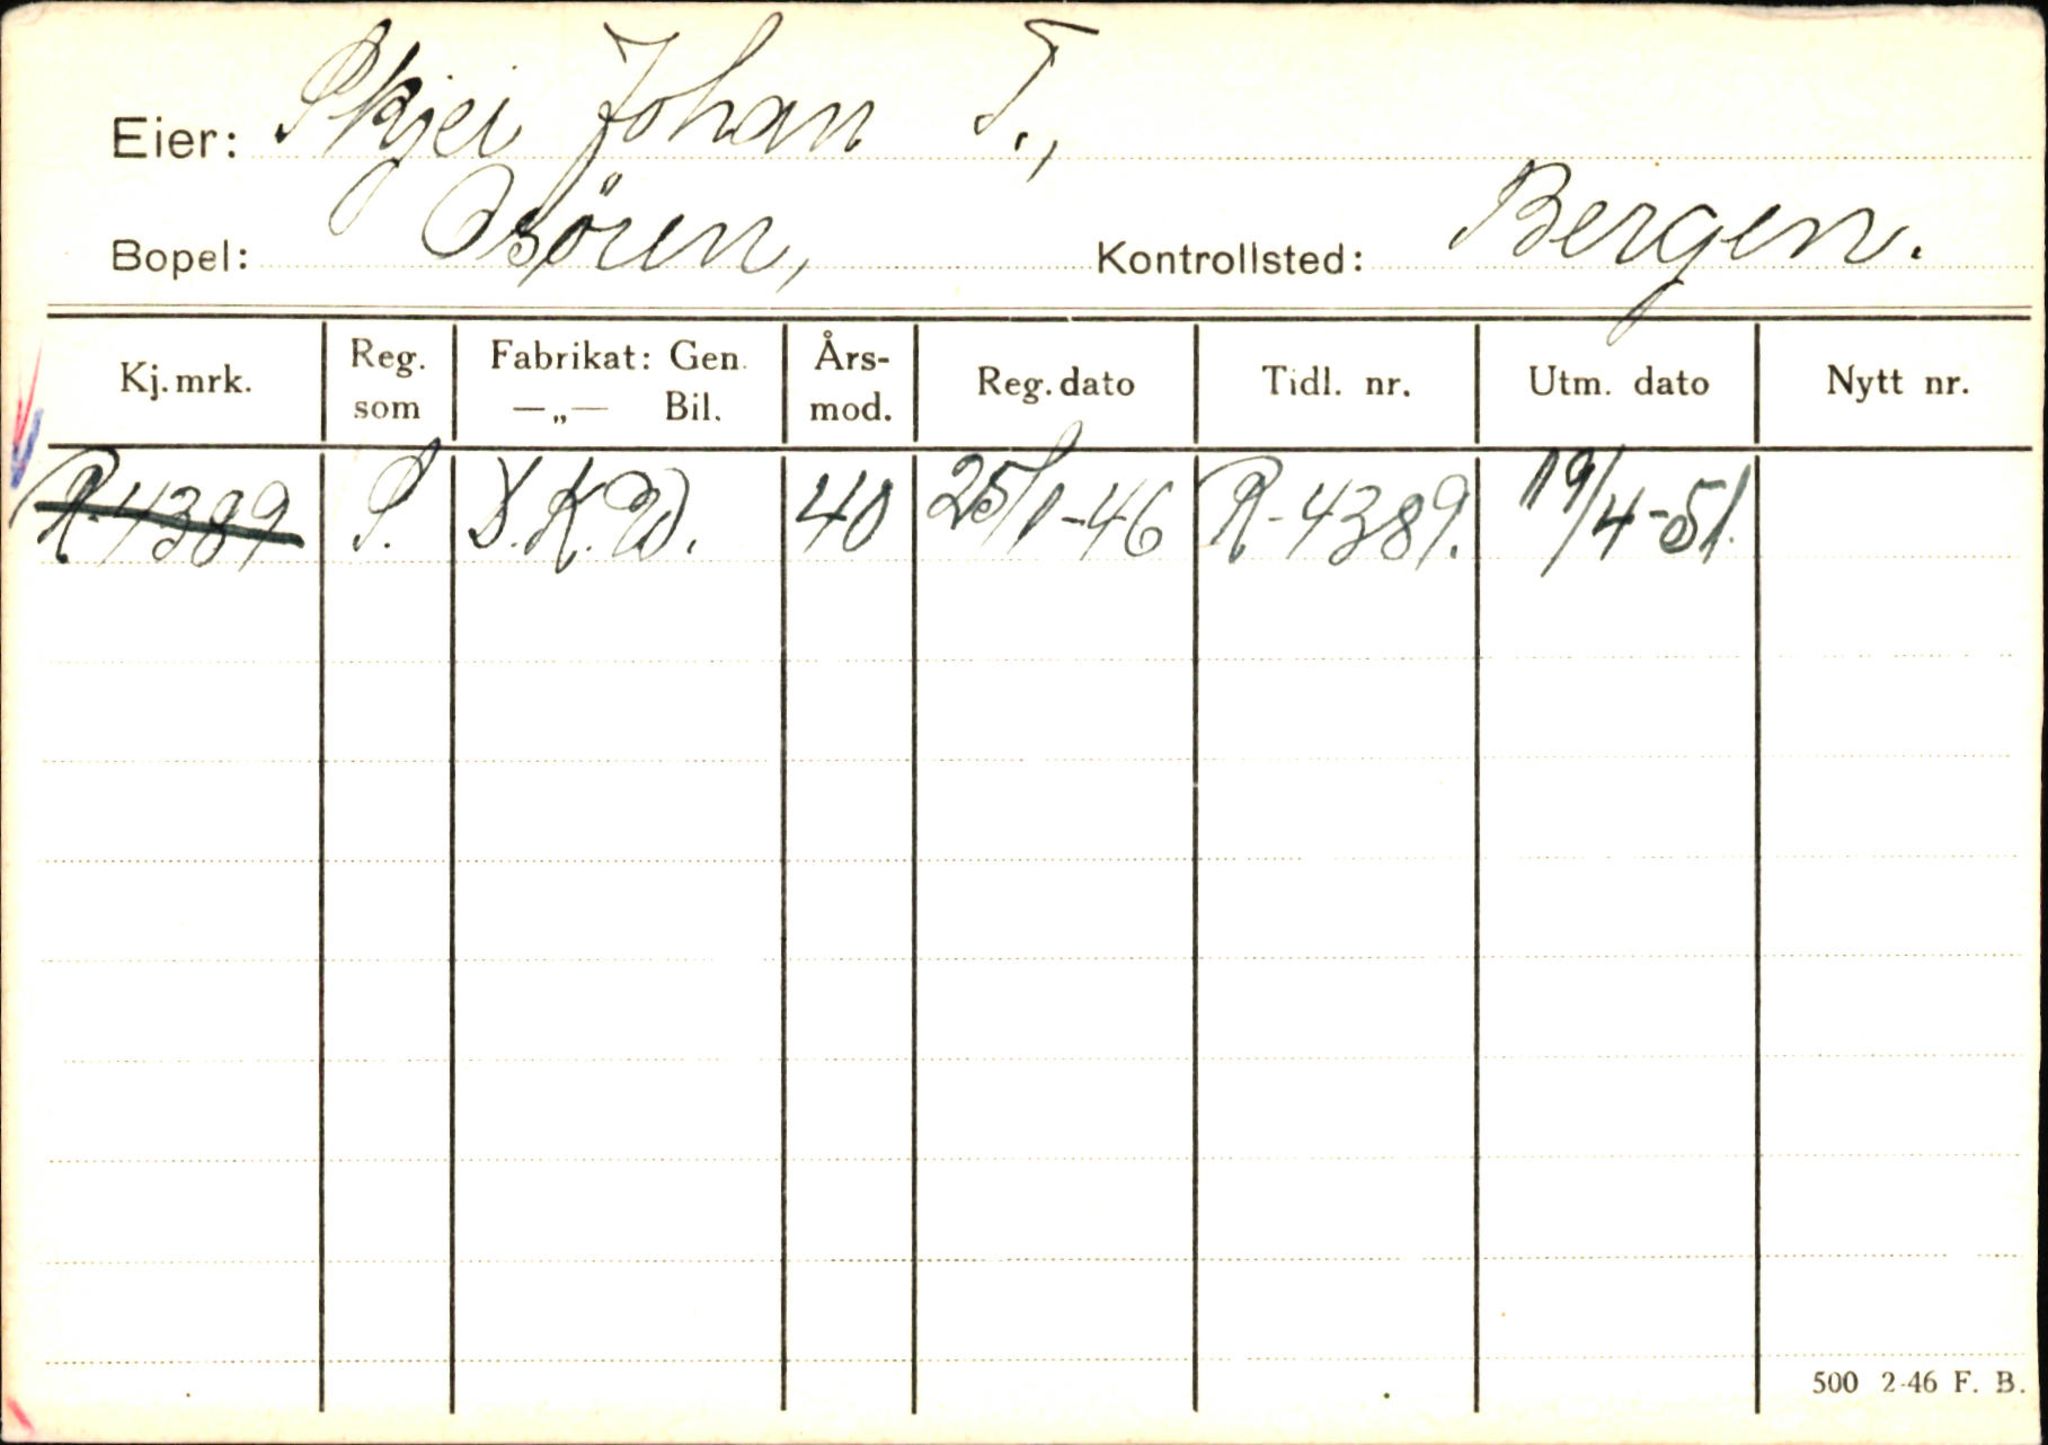 Eier: Skjei Johan T.,
Bopel: Osøren, Kontrollsted: Bergen.
Kj.mrk. Reg. som Fabrikat: Gen. —„— Bil. Års-mod. Reg.dato Tidl. nr. Utm. dato Nytt nr.
R-4389 S. D.K.W. 40 25/1-46 R-4389. 19/4-51.
500 2-46 F. B.